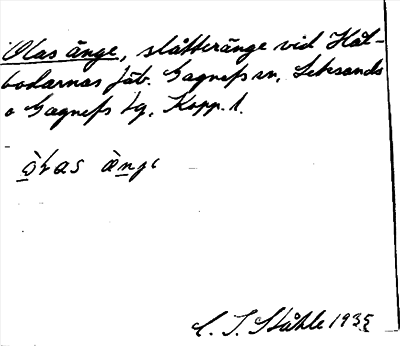 Olas änge, slåtteränge vid Hål-
bodarnas fäb. Gagnefs sn, Leksands
o Gagnefs tg, Kopp. l.
òlas ànge
C. I. Ståhle 1935